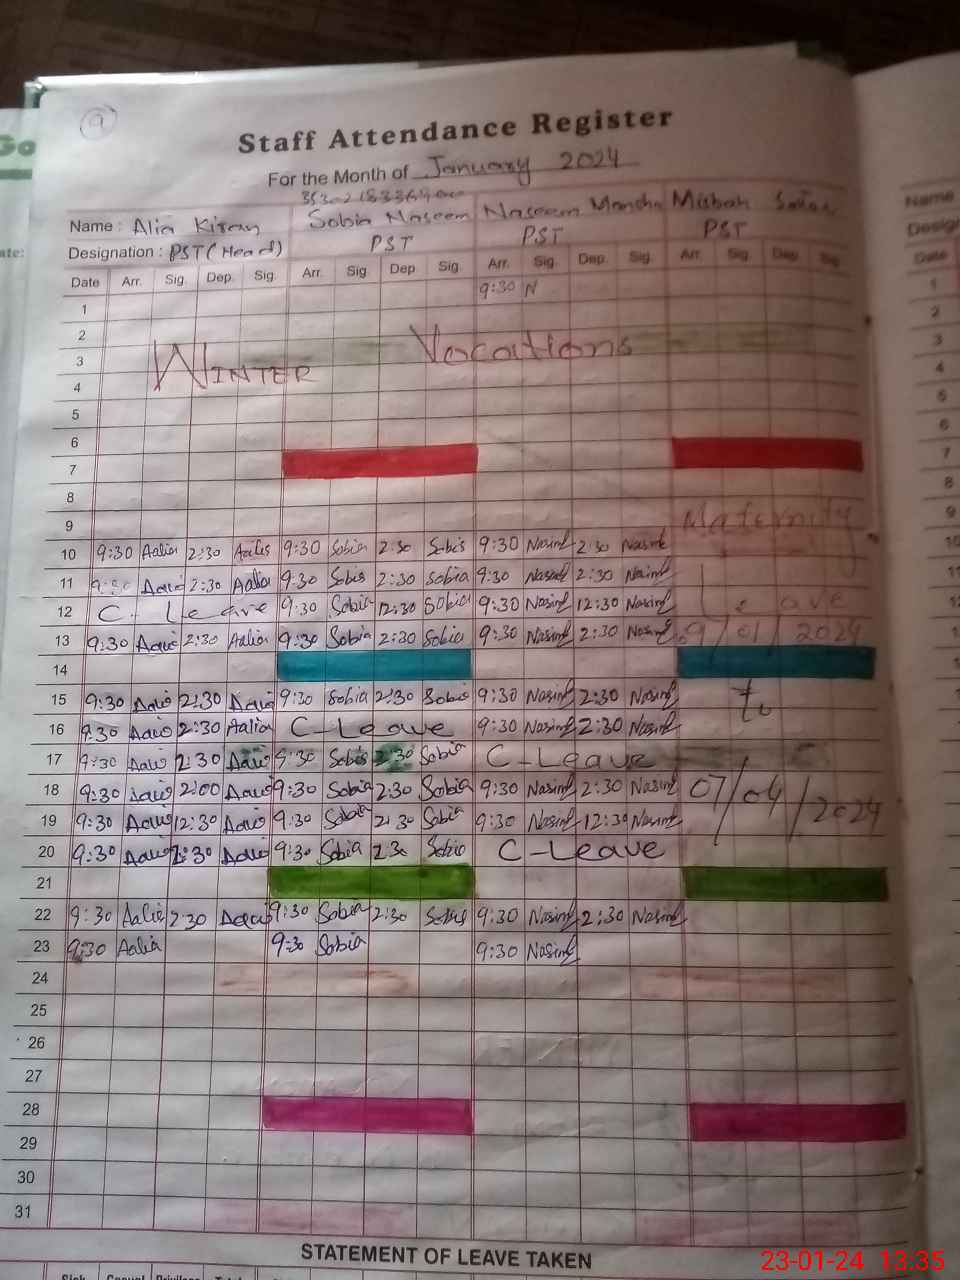 9
Staff Attendance Register
For the Month of January 2024
Name : Alia Kiran Sobia Naseem Naseem Mansha Misbah
Designation : PST (Head) PST PST PST
Date Arr. Sig. Dep. Sig. Arr. Sig. Dep. Sig. Arr. Sig. Dep. Sig. Arr. Sig. Dep. Sig.
1 9:30 N
2
3 WINTER Vocations
4
5
6
7
8
9 Maternity
10 9:30 Aalia 2:30 9:30 Sobia 2:30 Sobia 9:30 Nasim 2:30 Nasim
11 9:30 Aalia 2:30 Aalia 9:30 Sobia 2:30 Sobia 9:30 Nasim 2:30 Nasim
12 C. Leave 9:30 Sobia 12:30 Sobia 9:30 Nasim 12:30 Nasim Leave
13 9:30 Aalia 2:30 Aalia 9:30 Sobia 2:30 Sobia 9:30 Nasim 2:30 Nasim 09/01/2024
14
15 9:30 Aalia 2:30 Aalia 9:30 Sobia 2:30 Sobia 9:30 Nasim 2:30 Nasim to
16 9:30 Aalia 2:30 Aalia C-Leave 9:30 Nasim 2:30 Nasim
17 9:30 Aalia 2:30 Aalia 9:30 Sobia 2:30 Sobia C-Leave
18 9:30 Aalia 2:00 Aalia 9:30 Sobia 2:30 Sobia 9:30 Nasim 2:30 Nasim 07/04/2024
19 9:30 Aalia 12:30 Aalia 9:30 Sobia 2:30 Sobia 9:30 Nasim 12:30 Nasim
20 9:30 Aalia 2:30 Aalia 9:30 Sobia 2:30 Sobia C-Leave
21
22 9:30 Aalia 2:30 Aalia 9:30 Sobia 2:30 Sobia 9:30 Nasim 2:30 Nasim
23 9:30 Aalia 9:30 Sobia 9:30 Nasim
24
25
26
27
28
29
30
31
STATEMENT OF LEAVE TAKEN
23-01-24 13:35